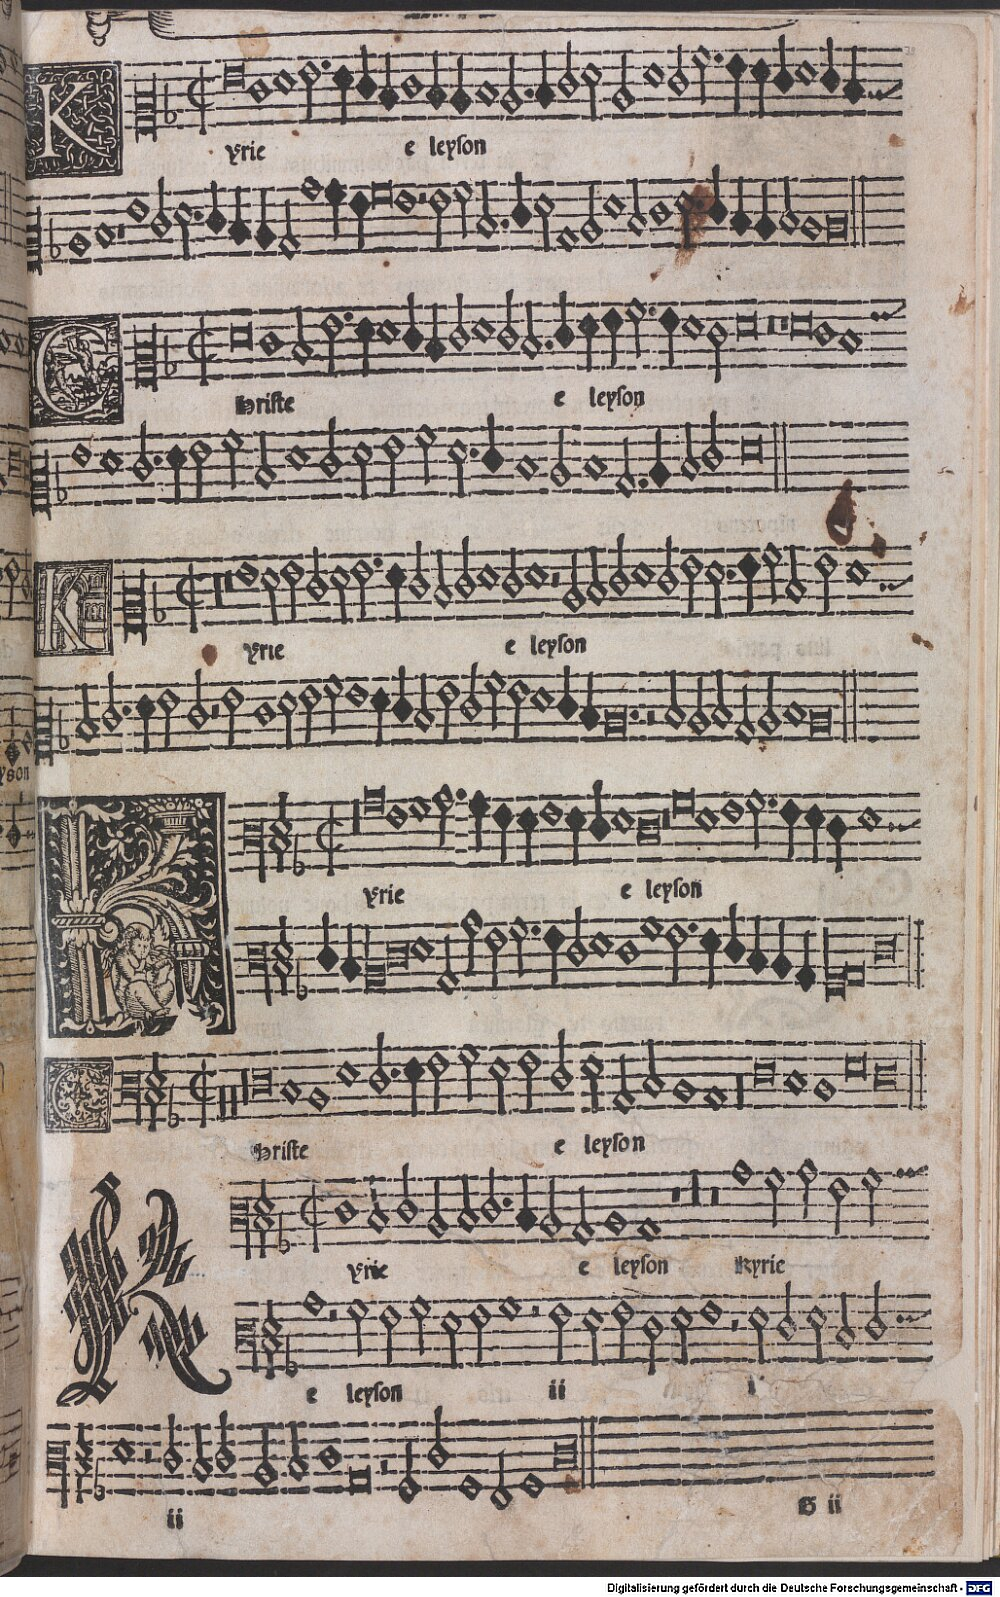 Kyrie e leyson
Christe e leyson
Kyrie e leyson
Kyrie e leyson
Christe e leyson
Kyrie e leyson Kyrie
e leyson ii i
ii
G ii
Digitalisierung gefördert durch die Deutsche Forschungsgemeinschaft - DFG